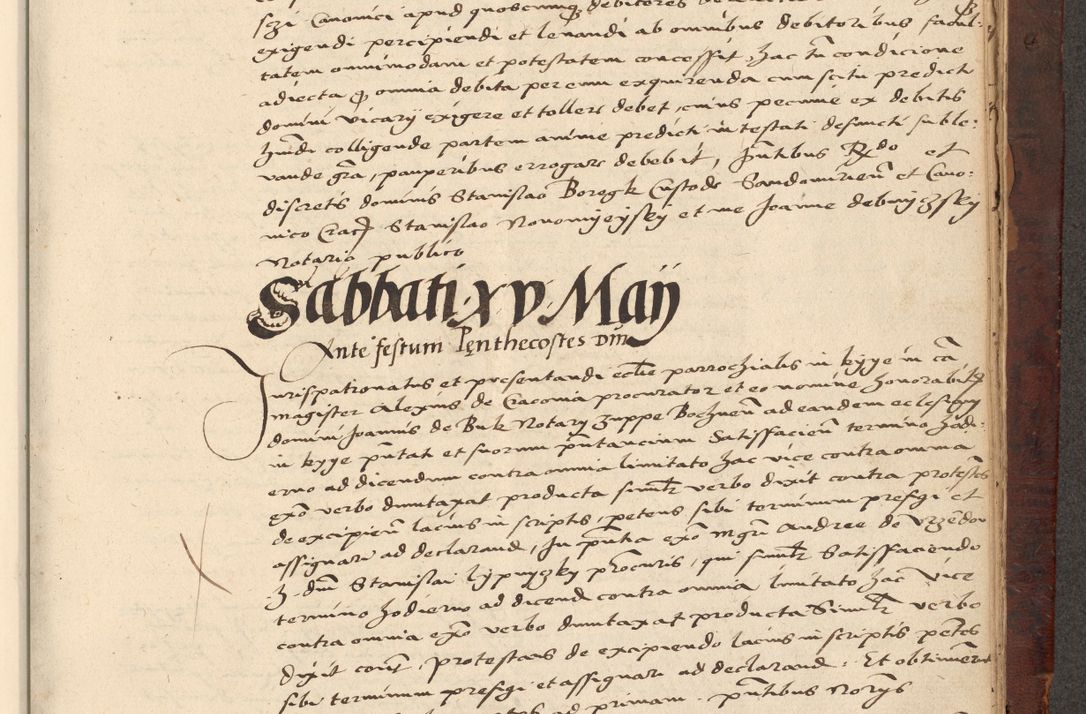 sczi Canonici apud quoscumq debitores
exigendi percipiendi et levandi ab omnibus debitoribus facul:
tatem omnimodam et potestatem concessit, hac tn condicione
adiecta q omnia debita per eum exquirenda cum scitu predicti
domini vicarij exigere et tollere debet, cuius pecunie ex debitis
hmdi colligende partem anime predicti intestati defuncti suble:
vande gra, pauperibus errogare debebit, pntibus Rdo et
discretis dominis Stanislao Borzgk Custode Sandomirien et Cano:
nico Crac Stanislao Novomyeyski et me Joanne debnyczsky
Notario publico
Sabbati xv Maij
Ante festum Penthecostes Dni
Jurispatronatus et presentandi ecclie parrochialis in kyye in ca
magister Alexius de Cracovia procurator et eo nomine honorabilis
domini Joannis de Buk Notarij zuppe Bochnen ad eandem ecclesiam
in kyye pntati et suorum pntancium Satisfacien termino hodi:
erno ad dicendum contra omnia limitato hac vice contra omnia
exo verbo dumtaxat producta similr verbo dixit contra protestas
de excipien lacius in scriptis, petens sibi terminum presigi et
assignari ad declarand, In pntia exo mgri Andree de Vrzendow
z dni Stanislai lypnyczky procuris, qui similr Satisfaciendo
termino hodierno ad dicend contra omnia limitato hac vice
contra omnia exo verbo dumtaxat producta Similr verbo
dixit cont, protestans de excipiendo lacius in scriptis petens
sibi terminum presigi et assignari ad declarand. Et obtinuerunt
ad primam. pntibus Norijs